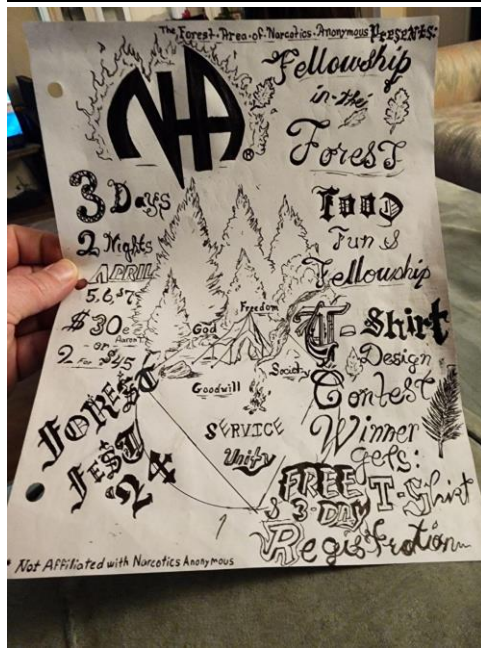 The Forest Area of Narcotics Anonymous Presents:
NA®
Fellowship
in the
Forest
3 Days
2 Nights
APRIL
5, 6, & 7
$30
- or -
2 For $45
FOREST
FEST
'24
Food
Fun &
Fellowship
T-Shirt
Design
Contest
Winner
gets:
FREE T-Shirt
& 3-DAY
Registration
Freedom
God
Society
Goodwill
SERVICE
Unity
* Not Affiliated with Narcotics Anonymous